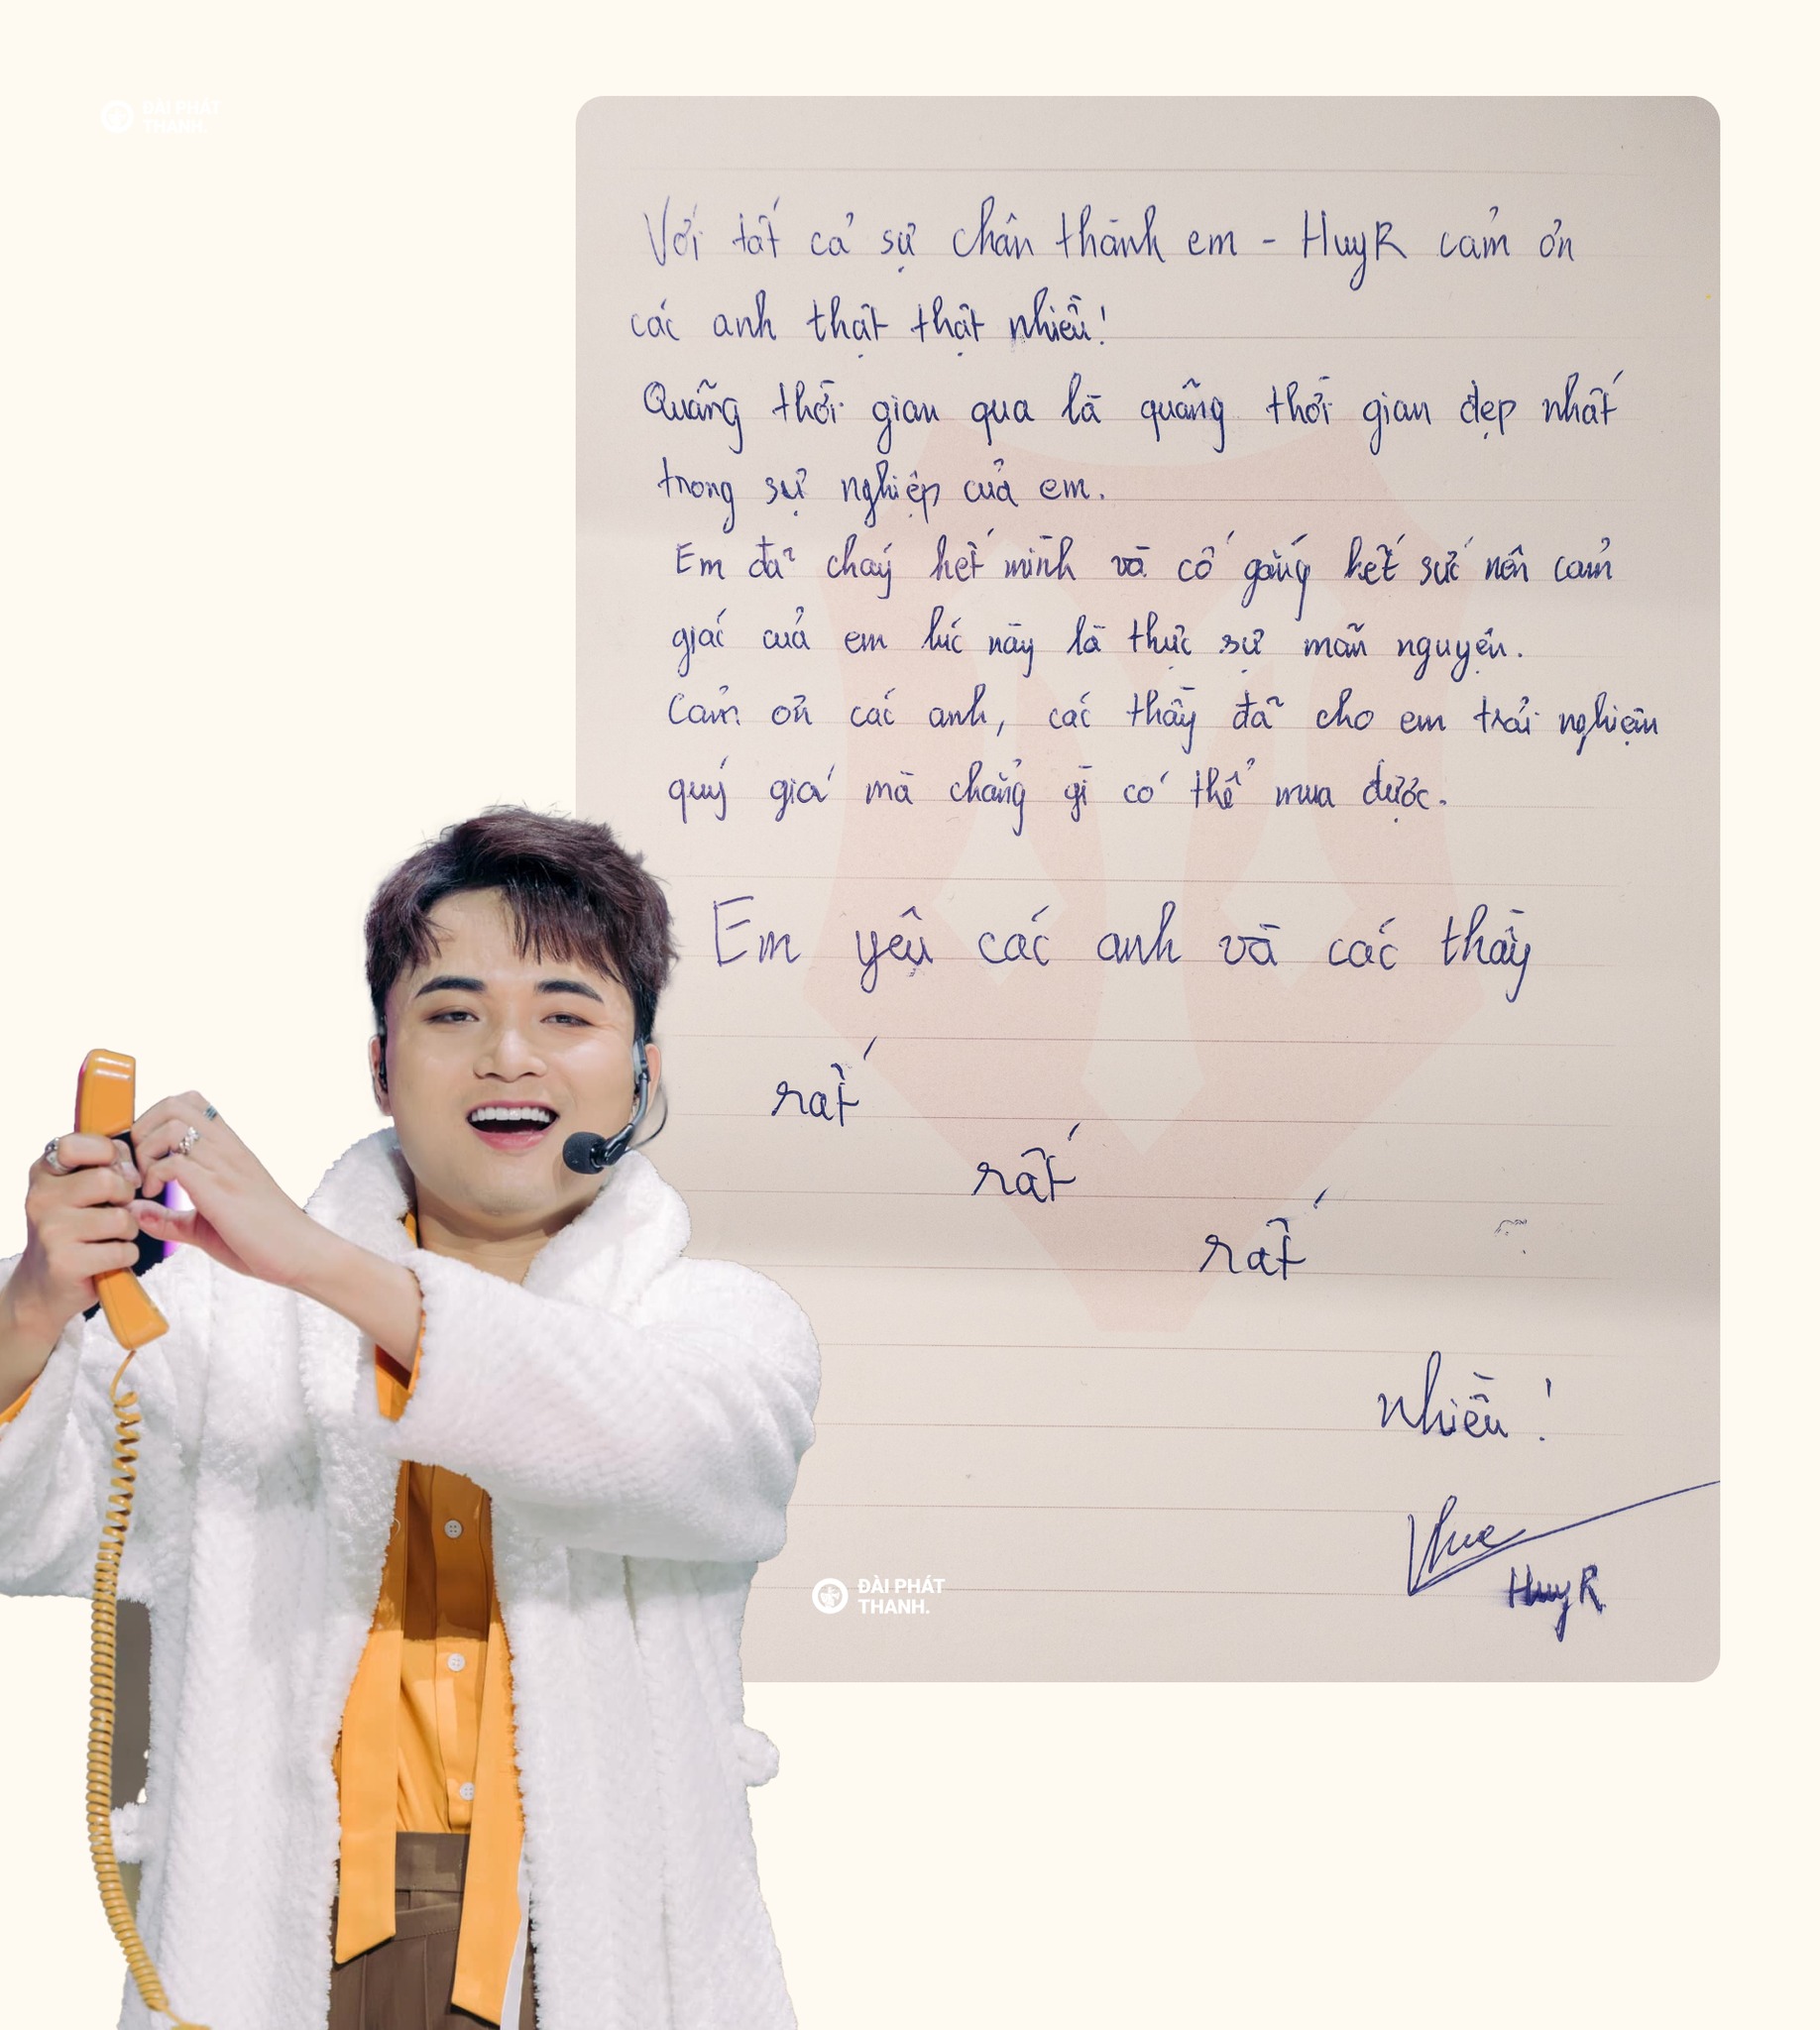 ĐÀI PHÁT
THANH.
Với tất cả sự chân thành em - HuyR cảm ơn
các anh thật thật nhiều!
Quãng thời gian qua là quãng thời gian đẹp nhất
trong sự nghiệp của em.
Em đã cháy hết mình và cố gắng hết sức nên cảm
giác của em lúc này là thực sự mãn nguyện.
Cảm ơn các anh, các thầy đã cho em trải nghiệm
quý giá mà chẳng gì có thể mua được.
Em yêu các anh và các thầy
rất
rất
rất
nhiều!
HuyR
ĐÀI PHÁT
THANH.